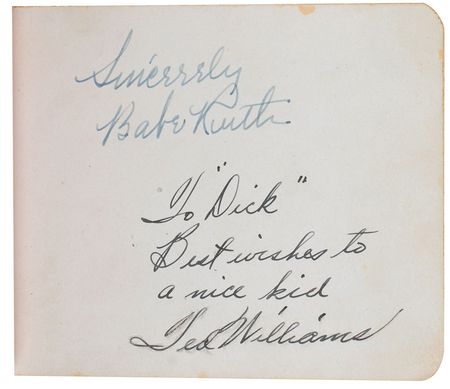 Sincerely
Babe Ruth
To "Dick"
Best wishes to
a nice kid
Ted Williams